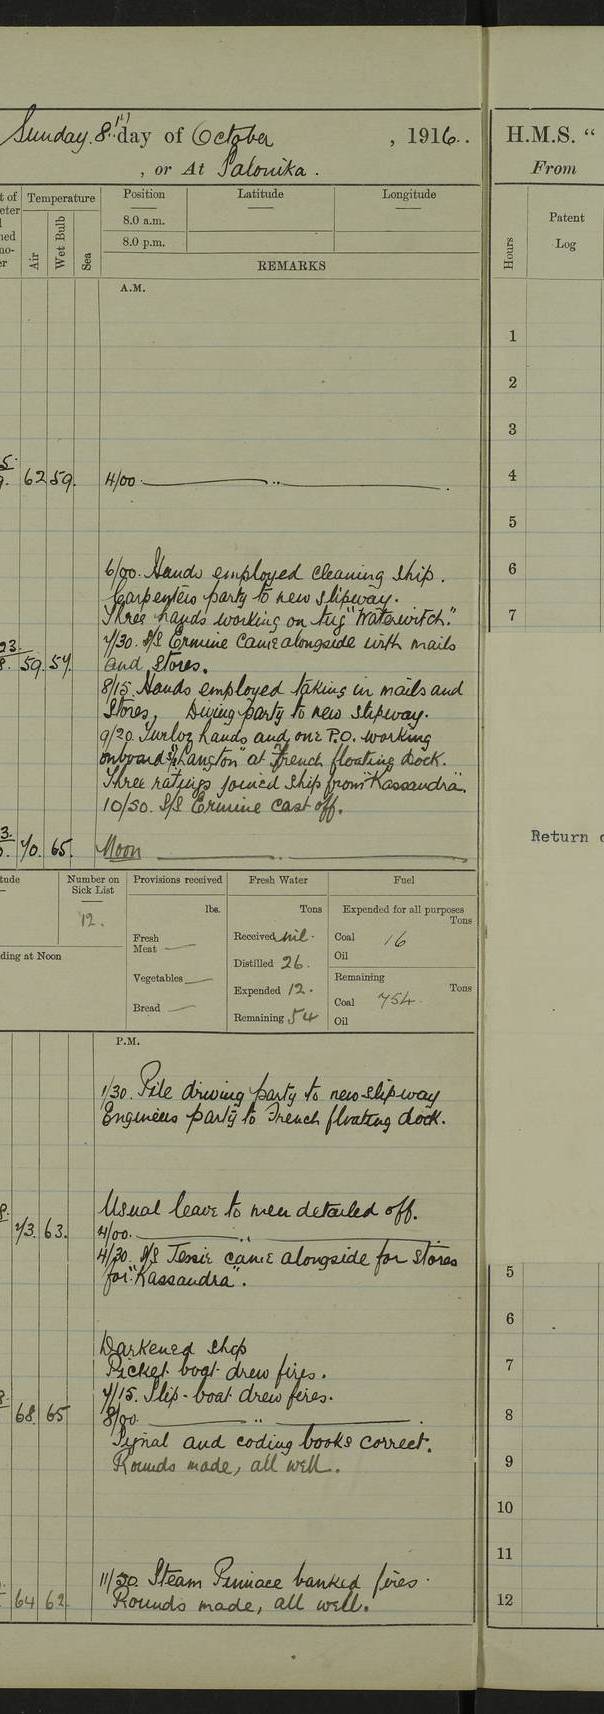 Sunday. 8th day of October , 1916..
, or At Salonika .
H.M.S. “
From
Temperature
Air
Wet Bulb
Sea
Position
Latitude
Longitude
8.0 a.m.
8.0 p.m.
REMARKS
Hours
Patent
Log
A.M.
1
2
3
62 59. 4/00
4
5
6/00. Hands employed cleaning ship.
6
Carpenters party to new slipway.
Three hands working on tug "Waterwitch."
7
7/30. S/S Ermine came alongside with mails
59. 57. and stores.
8/15. Hands employed taking in mails and
Stores, Diving party to new slipway.
9/20. Twelve hands and one P.O. working
onboard S/S "Langton" at French floating Dock.
Three ratings joined ship from "Kassandra".
10/50. S/S Ermine cast off.
70. 65. Noon
Return
Number on
Sick List
12.
Provisions received
lbs.
Fresh
Meat
Vegetables
Bread
Fresh Water
Tons
Received nil.
Distilled 26.
Expended 12.
Remaining 54
Fuel
Expended for all purposes
Tons
Coal 16
Oil
Remaining
Tons
Coal 754.
Oil
ding at Noon
P.M.
1/30. Pile driving party to new slipway
Engineers party to French floating dock.
Usual leave to men detailed off.
73. 63. 4/00.
4/30. S/S Jessie came alongside for stores
for "Kassandra".
5
6
Darkened ship
Picket boat drew fires.
7
7/15. Slip-boat drew fires.
68. 65 8/00.
8
Signal and coding books correct.
Rounds made, all well.
9
10
11
11/30. Steam Pinnace banked fires.
64 62 Rounds made, all well.
12